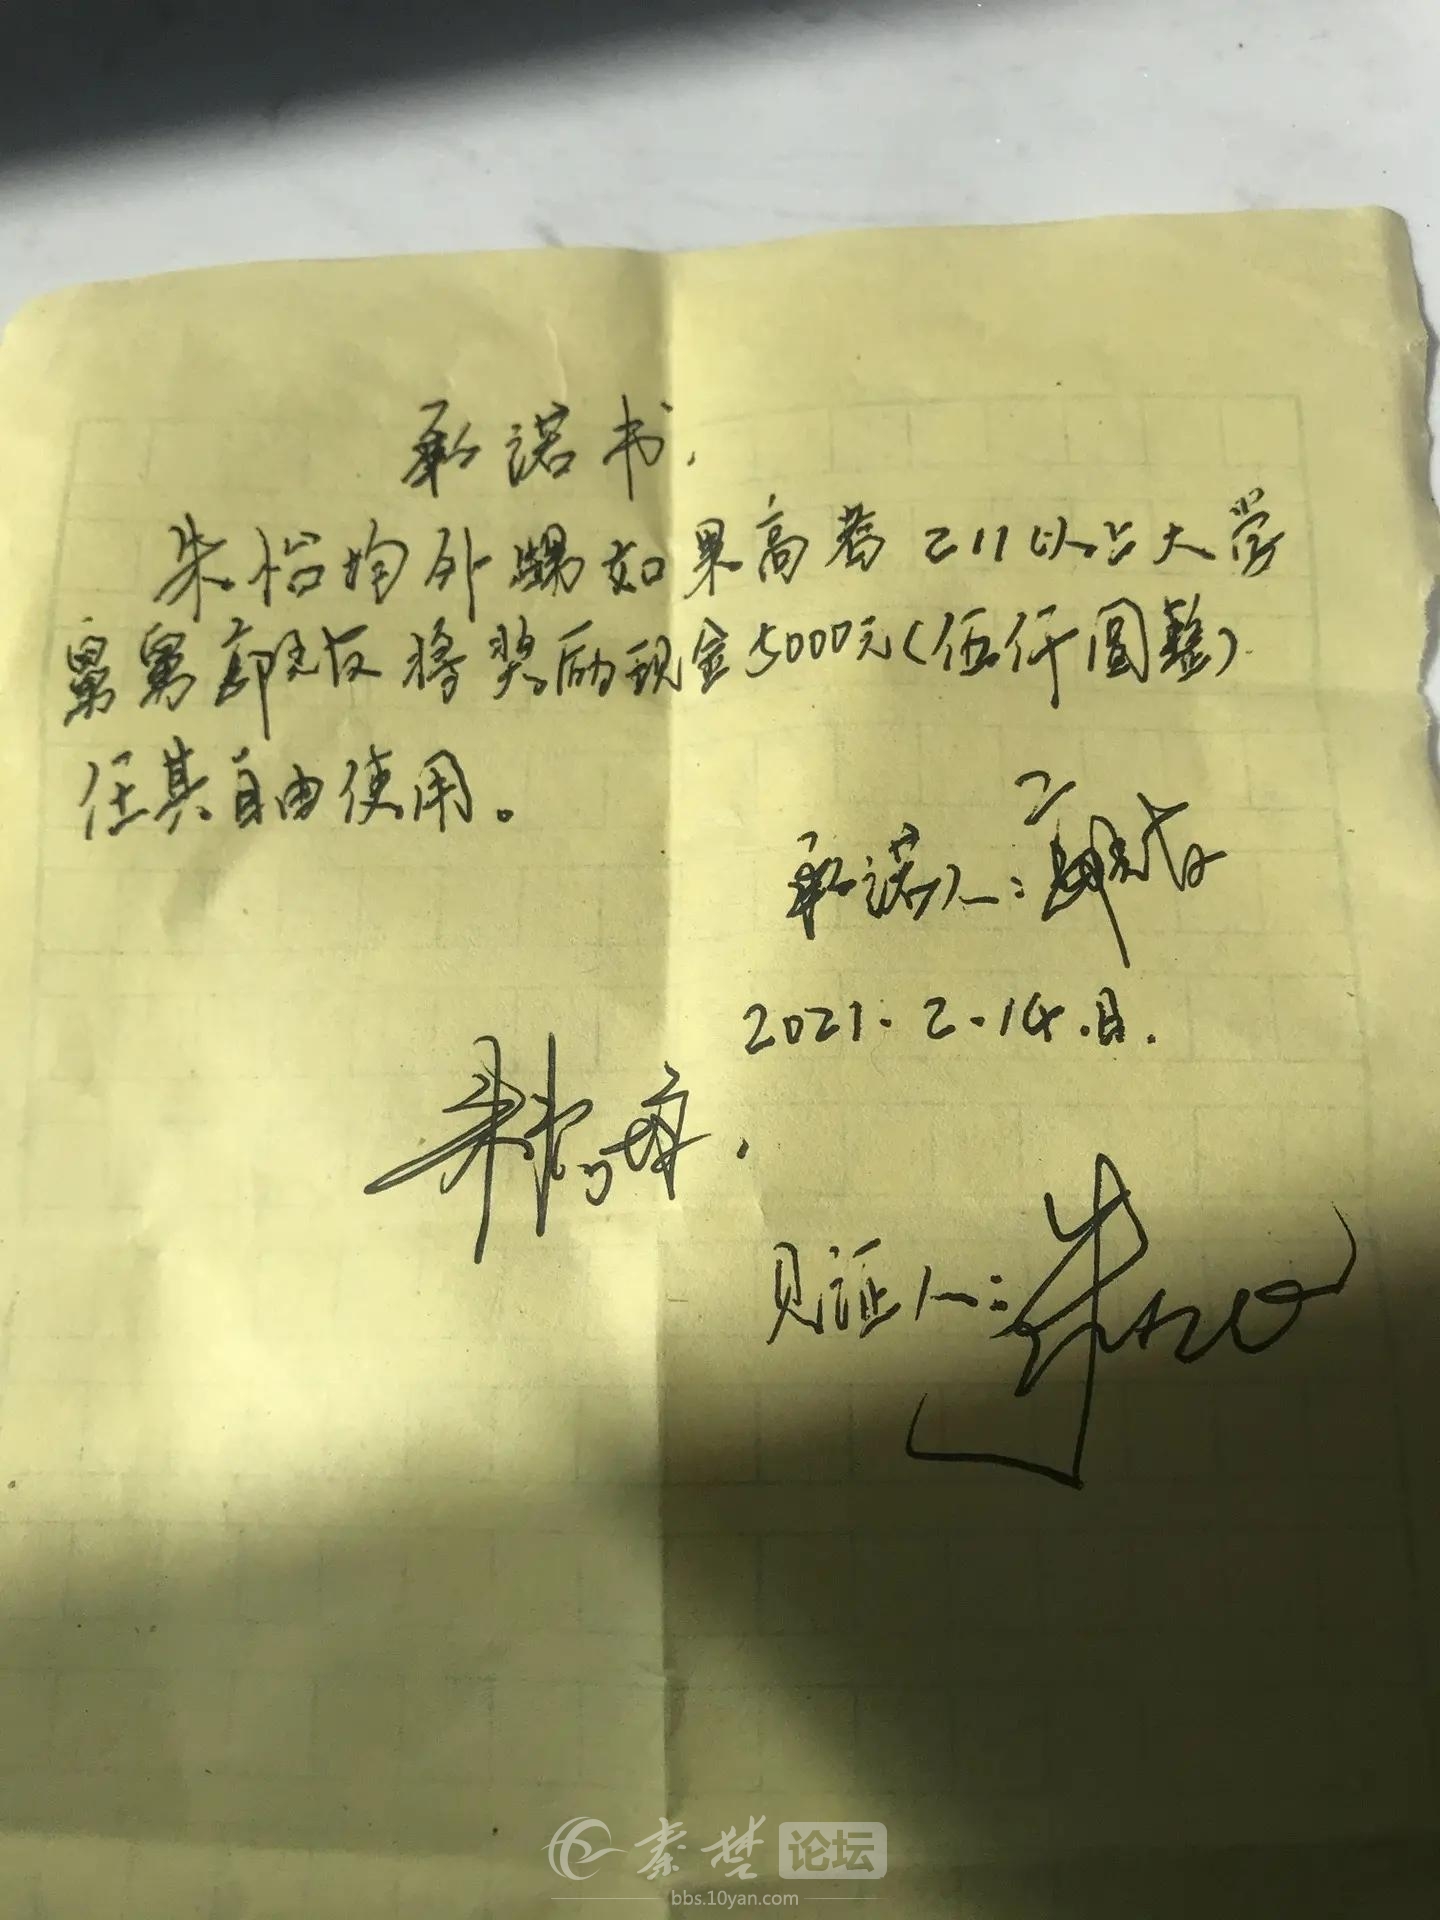 承诺书.
朱怡均外甥如果高考211以上大学
舅舅郭 将奖励现金5000元(伍仟圆整).
任其自由使用。
承诺人:郭
2021.2.14.日.
见证人:朱
秦楚论坛
bbs.10yan.com